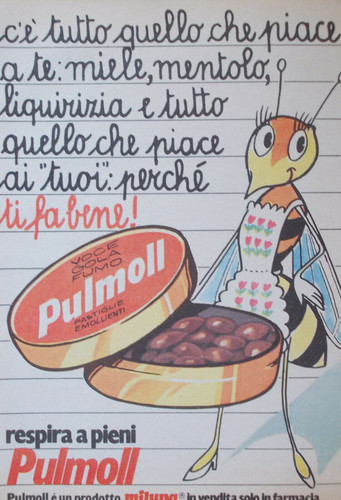 c'è tutto quello che piace
a te: miele, mentolo,
liquirizia e tutto
quello che piace
ai "tuoi": perché
ti fa bene!
VOCE
GOLA
FUMO
Pulmoll
PASTIGLIE
EMOLLIENTI
respira a pieni
Pulmoll
Pulmoll é un prodotto milupa® in vendita solo in farmacia